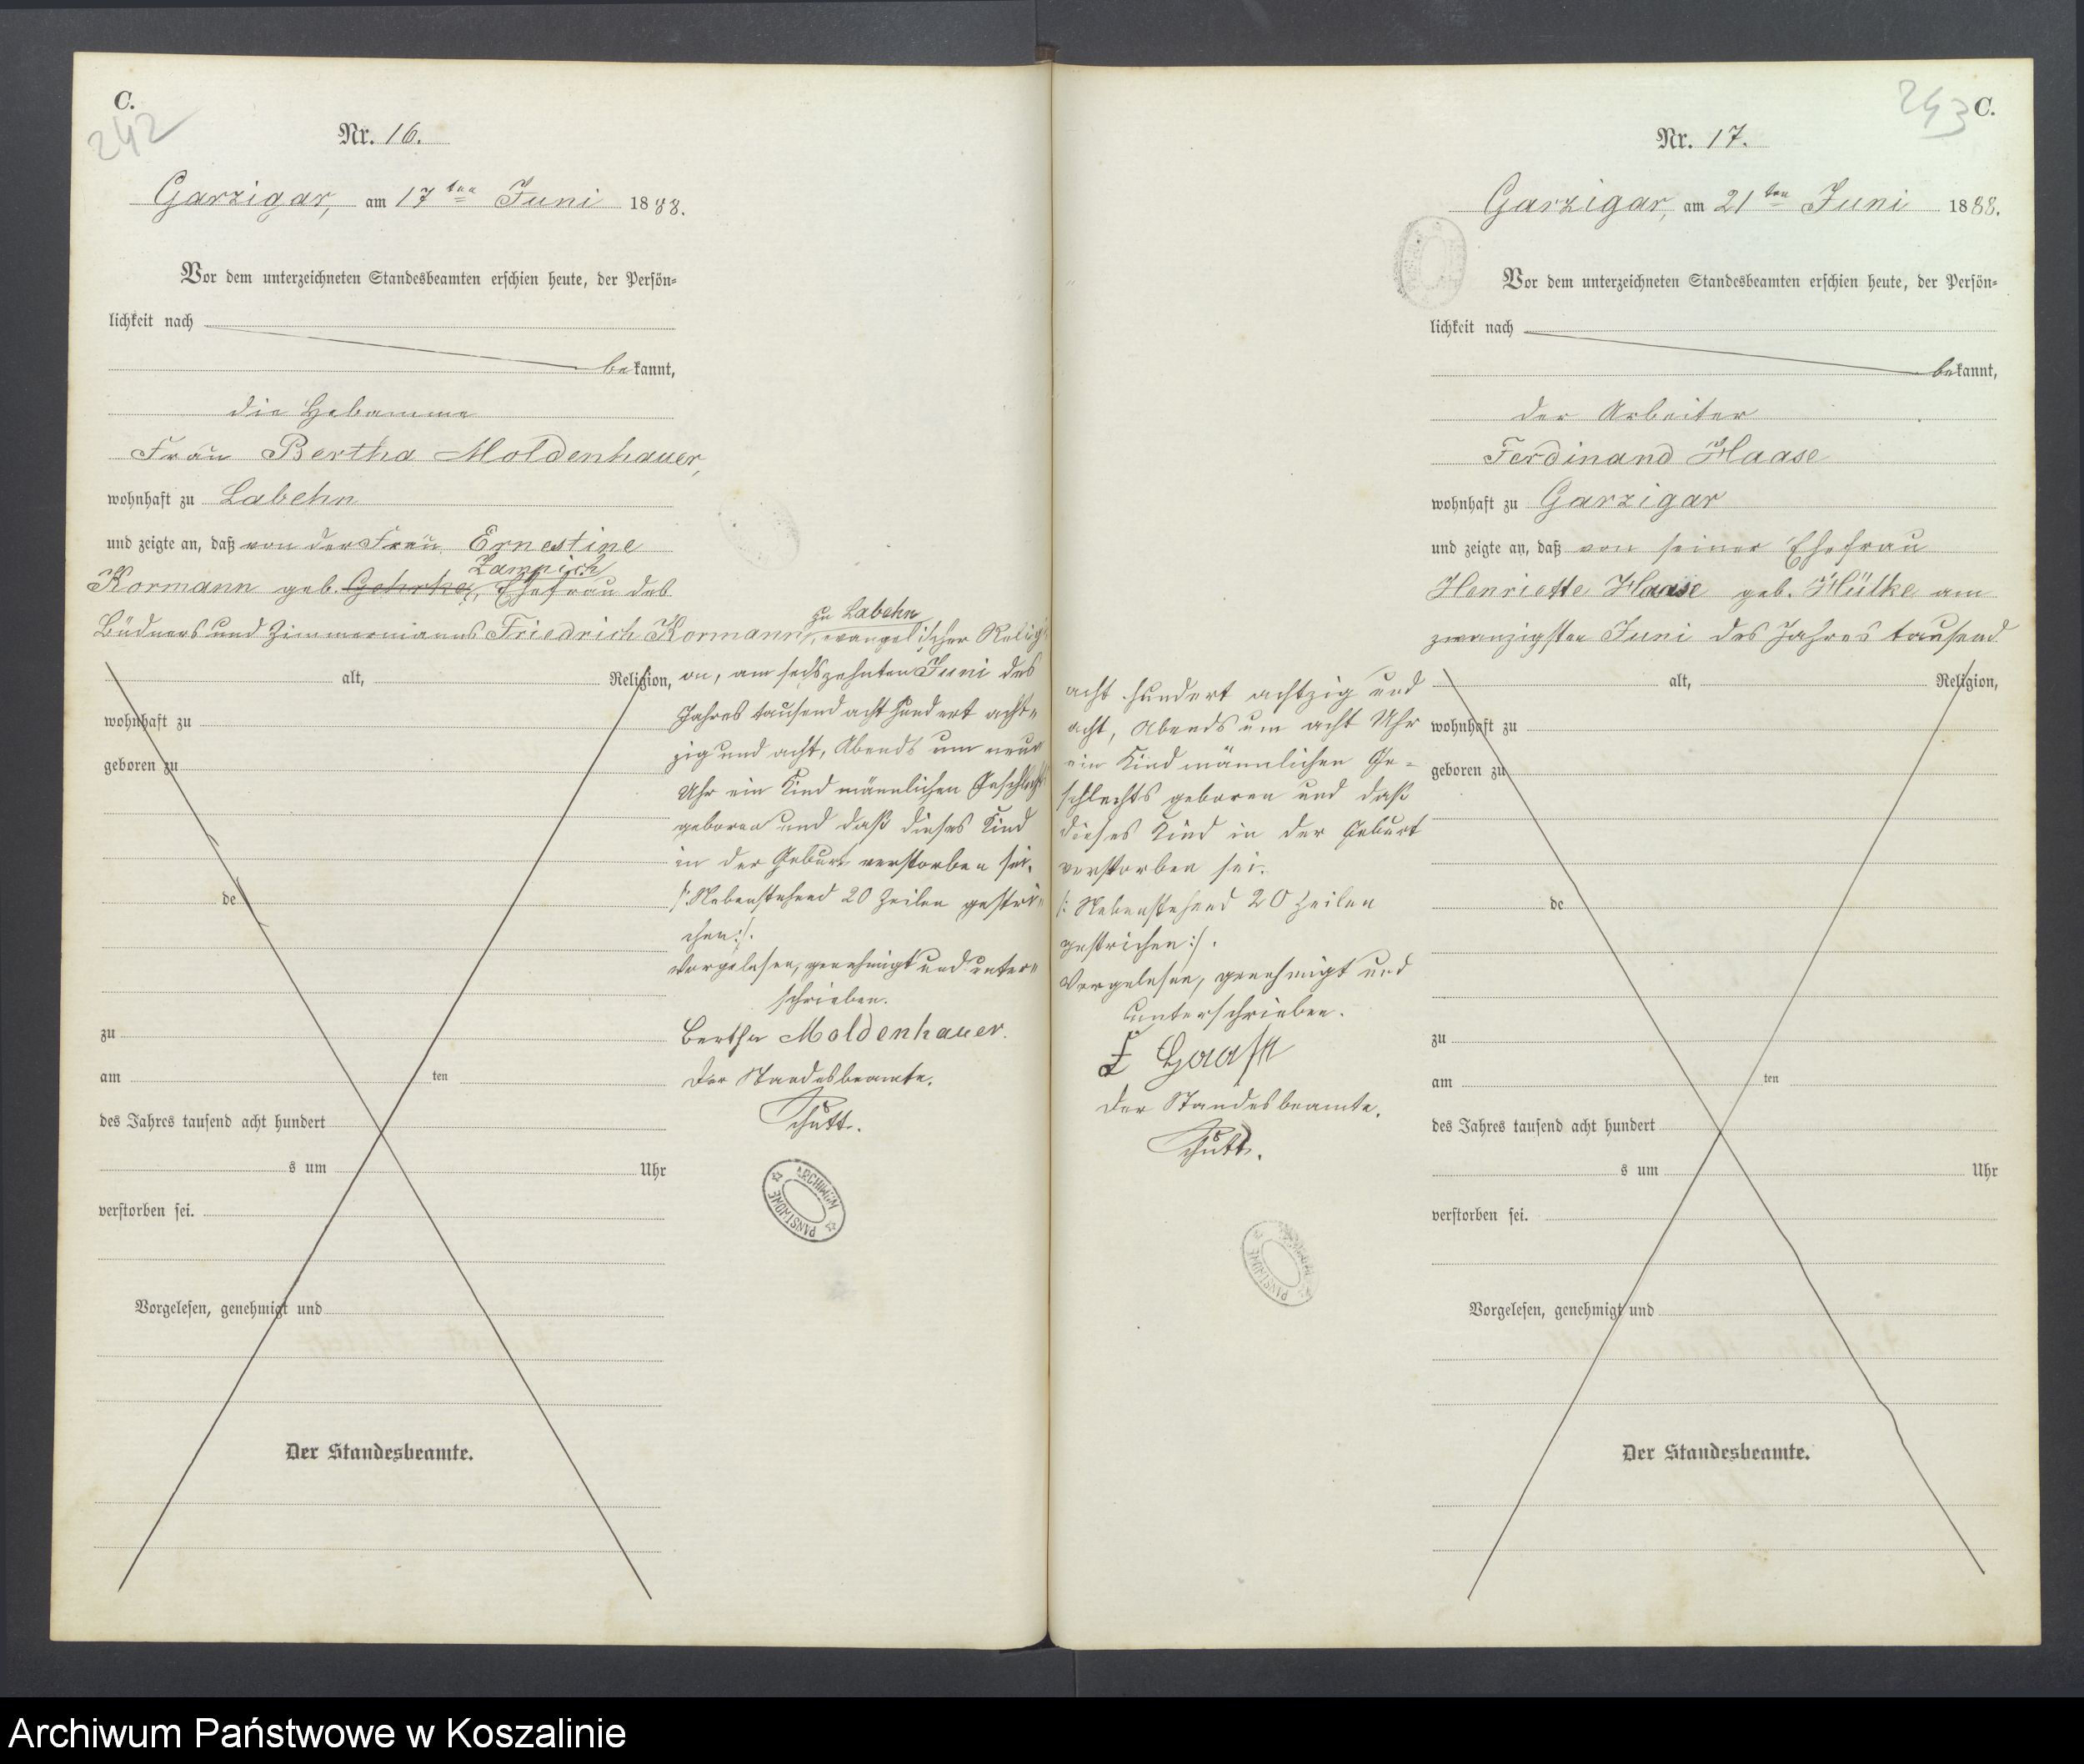 C.
242
Nr. 16.
Garzigar, am 17ten Juni 1888.
Vor dem unterzeichneten Standesbeamten erschien heute, der Persön-
lichkeit nach
bekannt,
die Hebamme
Frau Bertha Moldenhauer,
wohnhaft zu Labehn
und zeigte an, daß von der Frau Ernestine
Zampich
Kormann geb. Gehrke, Ehefrau des
zu Labehn
Büdners und Zimmermanns Friedrich Kormann, evangelischer Religi-
on, am sechszehnten Juni des
Jahres tausend acht hundert acht-
zig und acht, Abends um neun
Uhr ein Kind männlichen Geschlechts
geboren und daß dieses Kind
in der Geburt verstorben sei.
/: Nebenstehend 20 Zeilen gestri-
chen :/.
Vorgelesen, genehmigt und unter-
schrieben.
Bertha Moldenhauer.
Der Standesbeamte.
Schütt.
alt, Religion,
wohnhaft zu
geboren zu
de
zu
am ten
des Jahres tausend acht hundert
s um Uhr
verstorben sei.
Vorgelesen, genehmigt und
Der Standesbeamte.
ARCHIWUM PAŃSTWOWE
243 C.
Nr. 17.
Garzigar, am 21ten Juni 1888.
Vor dem unterzeichneten Standesbeamten erschien heute, der Persön-
lichkeit nach
bekannt,
der Arbeiter
Ferdinand Haase
wohnhaft zu Garzigar
und zeigte an, daß von seiner Ehefrau
Henriette Haase geb. Hülke am
zwanzigsten Juni des Jahres tausend
acht hundert achtzig und
acht, Abends um acht Uhr
ein Kind männlichen Ge-
schlechts geboren und daß
dieses Kind in der Geburt
verstorben sei.
/: Nebenstehend 20 Zeilen
gestrichen :/.
Vorgelesen, genehmigt und
unterschrieben.
F Haase
Der Standesbeamte.
Schütt.
alt, Religion,
wohnhaft zu
geboren zu
de
zu
am ten
des Jahres tausend acht hundert
s um Uhr
verstorben sei.
Vorgelesen, genehmigt und
Der Standesbeamte.
Archiwum Państwowe w Koszalinie